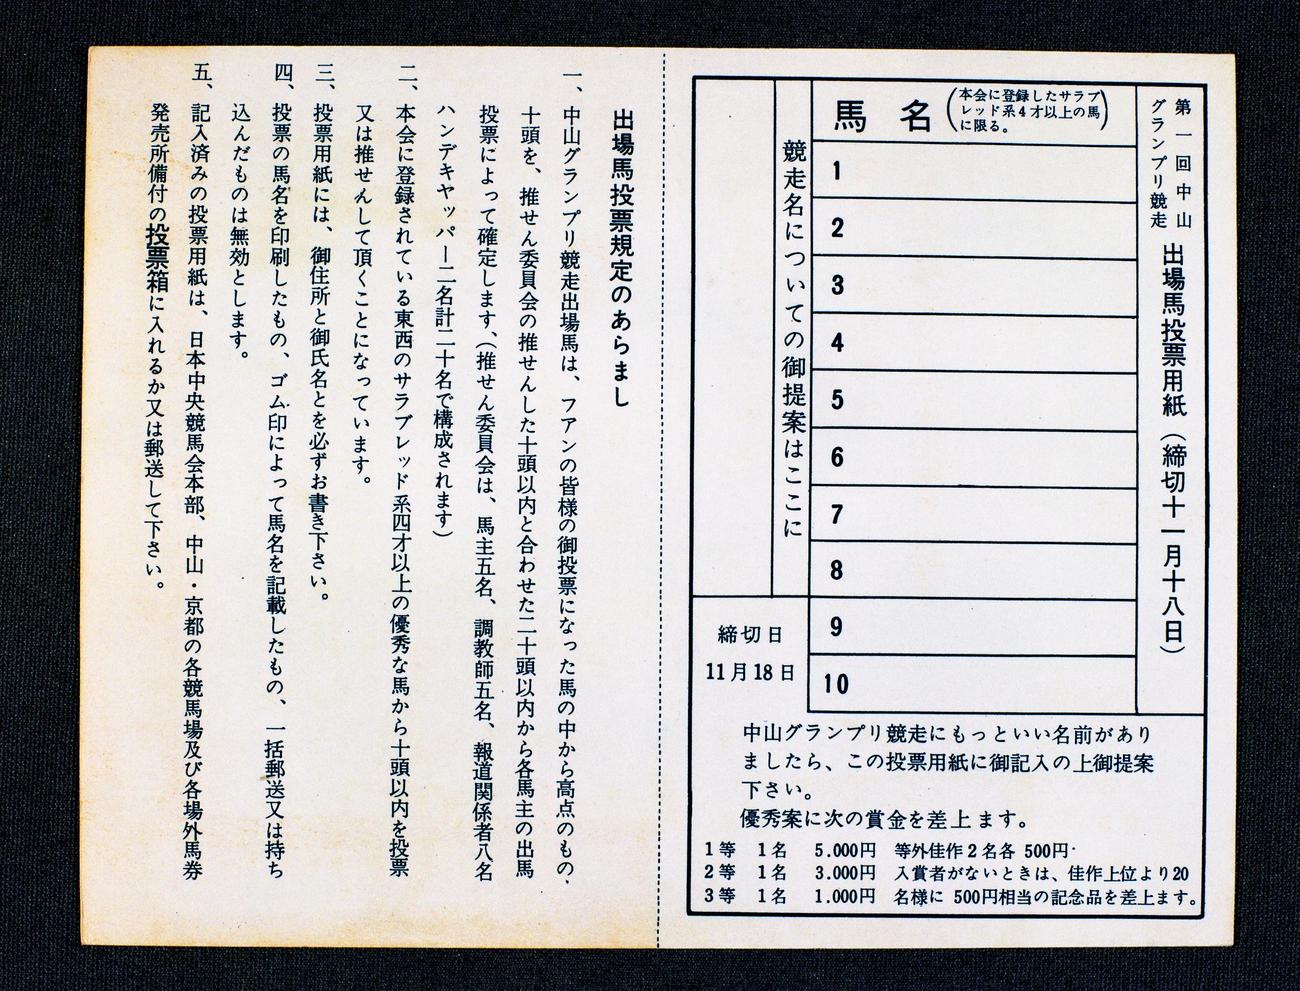 第一回中山
グランプリ競走
出場馬投票用紙(締切十一月十八日)
馬名(本会に登録したサラブ
レッド系4才以上の馬
に限る。)
1
2
3
4
5
6
7
8
9
10
競走名についての御提案はここに
締切日
11月18日
中山グランプリ競走にもっといい名前があり
ましたら、この投票用紙に御記入の上御提案
下さい。
優秀案に次の賞金を差上ます。
1等 1名 5.000円 等外佳作2名各 500円
2等 1名 3.000円 入賞者がないときは、佳作上位より20
3等 1名 1.000円 名様に 500円相当の記念品を差上ます。
出場馬投票規定のあらまし
一、中山グランプリ競走出場馬は、フアンの皆様の御投票になった馬の中から高点のもの、
十頭を、推せん委員会の推せんした十頭以内と合わせた二十頭以内から各馬主の出馬
投票によって確定します、(推せん委員会は、馬主五名、調教師五名、報道関係者八名
ハンデキヤッパー二名計二十名で構成されます)
二、本会に登録されている東西のサラブレッド系四才以上の優秀な馬から十頭以内を投票
又は推せんして頂くことになっています。
三、投票用紙には、御住所と御氏名とを必ずお書き下さい。
四、投票の馬名を印刷したもの、ゴム印によって馬名を記載したもの、一括郵送又は持ち
込んだものは無効とします。
五、記入済みの投票用紙は、日本中央競馬会本部、中山・京都の各競馬場及び各場外馬券
発売所備付の投票箱に入れるか又は郵送して下さい。